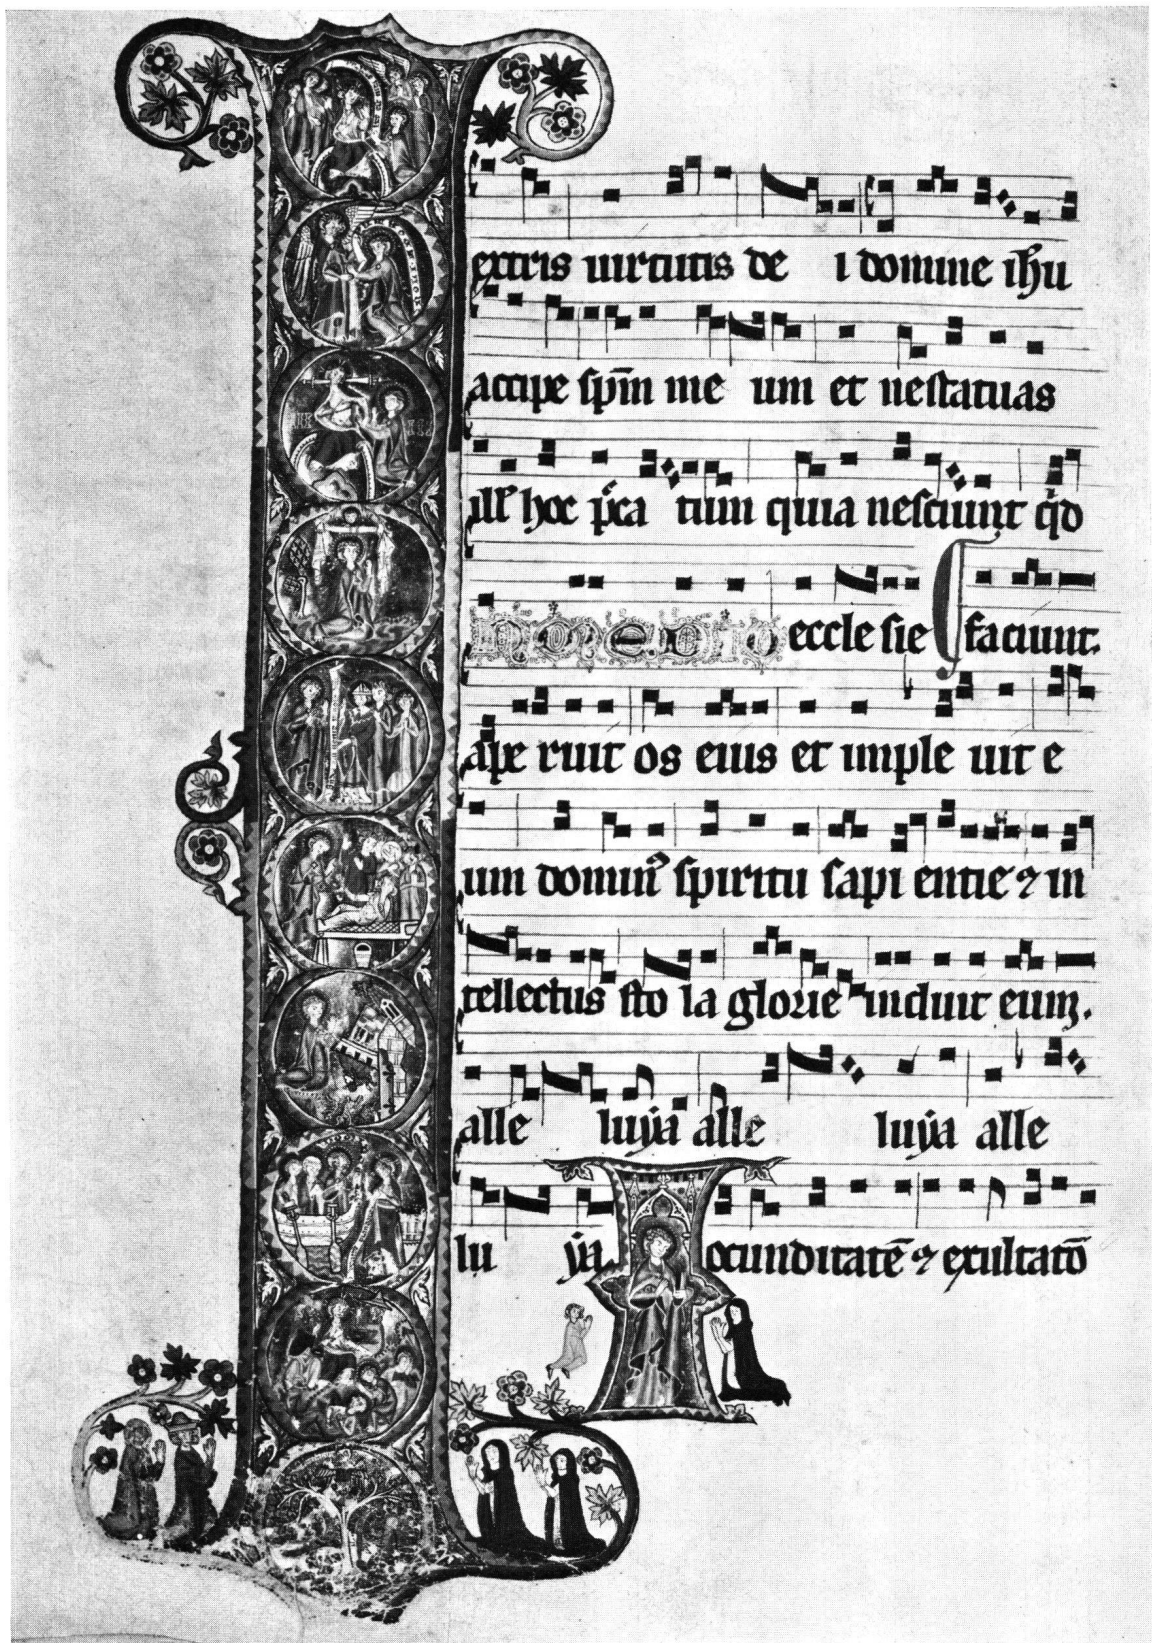 extris uirtutis de i domine ihu
accipe spm̄ me um et nestatuas
ill' hoc p̄cca tum quia nesciunt qd
In medio eccle sie faciunt.
ape ruit os eius et imple uit e
um domin' spiritu sapi entie ⁊ in
tellectus sto la glorie induit eum.
alle luya alle luya alle
lu ya. ocunditatē ⁊ exultatō